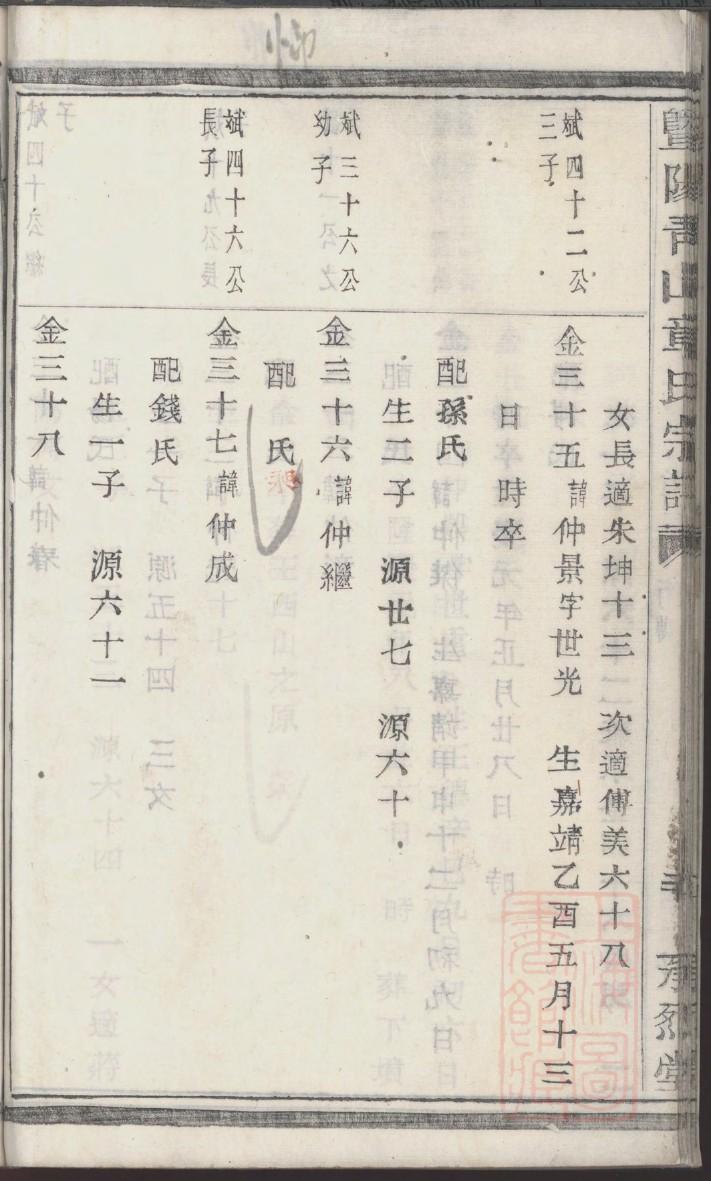 暨陽青山章氏宗譜
承烈堂
女長適朱坤十三　次適傅美六十八
斌四十二公
三子
金三十五諱仲景字世光　生嘉靖乙酉五月十三
日　時卒
配孫氏
生二子　源廿七　源六十
斌三十六公
幼子
金三十六諱仲繼
配　氏
斌四十六公
長子
金三十七諱仲成
配錢氏
生一子　源六十一
金三十八